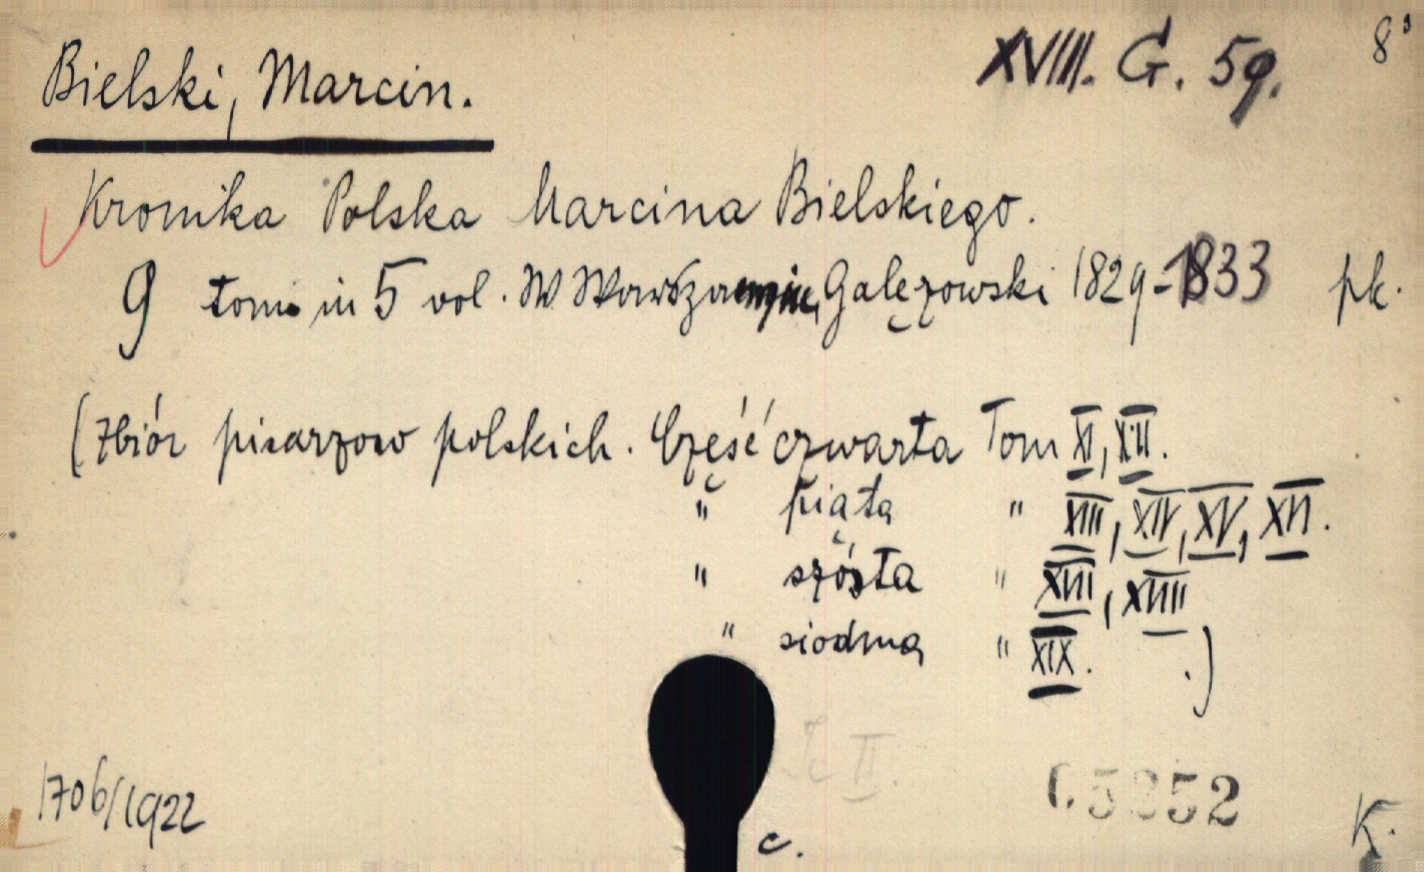 XVIII. G. 59.
8°
Bielski, Marcin.
Kronika Polska Marcina Bielskiego.
9 tom in 5 vol. W Warszawie, Galęzowski 1829-1833 pk.
(Zbiór pisarzow polskich. Część czwarta Tom XI, XII.
" piąta " XIII, XIV, XV, XVI.
" szósta " XVII, XVIII
" siodma " XIX. .)
II.
1706/1922
c.
K.